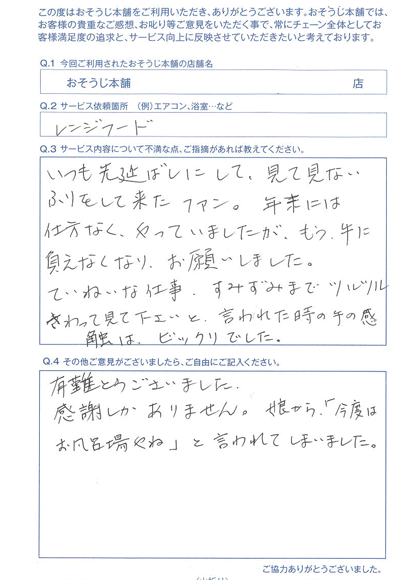 この度はおそうじ本舗をご利用いただき、ありがとうございます。おそうじ本舗では、
お客様の貴重なご感想、お叱り等ご意見をいただく事で、常にチェーン全体としてお
客様満足度の追求と、サービス向上に反映させていただきたいと考えております。
Q.1 今回ご利用されたおそうじ本舗の店舗名
おそうじ本舗 店
Q.2 サービス依頼箇所 (例)エアコン、浴室…など
レンジフード
Q.3 サービス内容について不満な点、ご指摘があれば教えてください。
いつも先延ばしにして、見て見ない
ふりをして来たファン。年末には
仕方なく、やっていましたが、もう、手に
負えなくなり、お願いしました。
ていねいな仕事、すみずみまでツルツル
さわって見て下さいと、言われた時の手の感
触は、ビックリでした。
Q.4 その他ご意見がございましたら、ご自由にご記入ください。
有難とうございました。
感謝しかありません。娘から、「今度は
お風呂場やね」と言われてしまいました。
ご協力ありがとうございました。